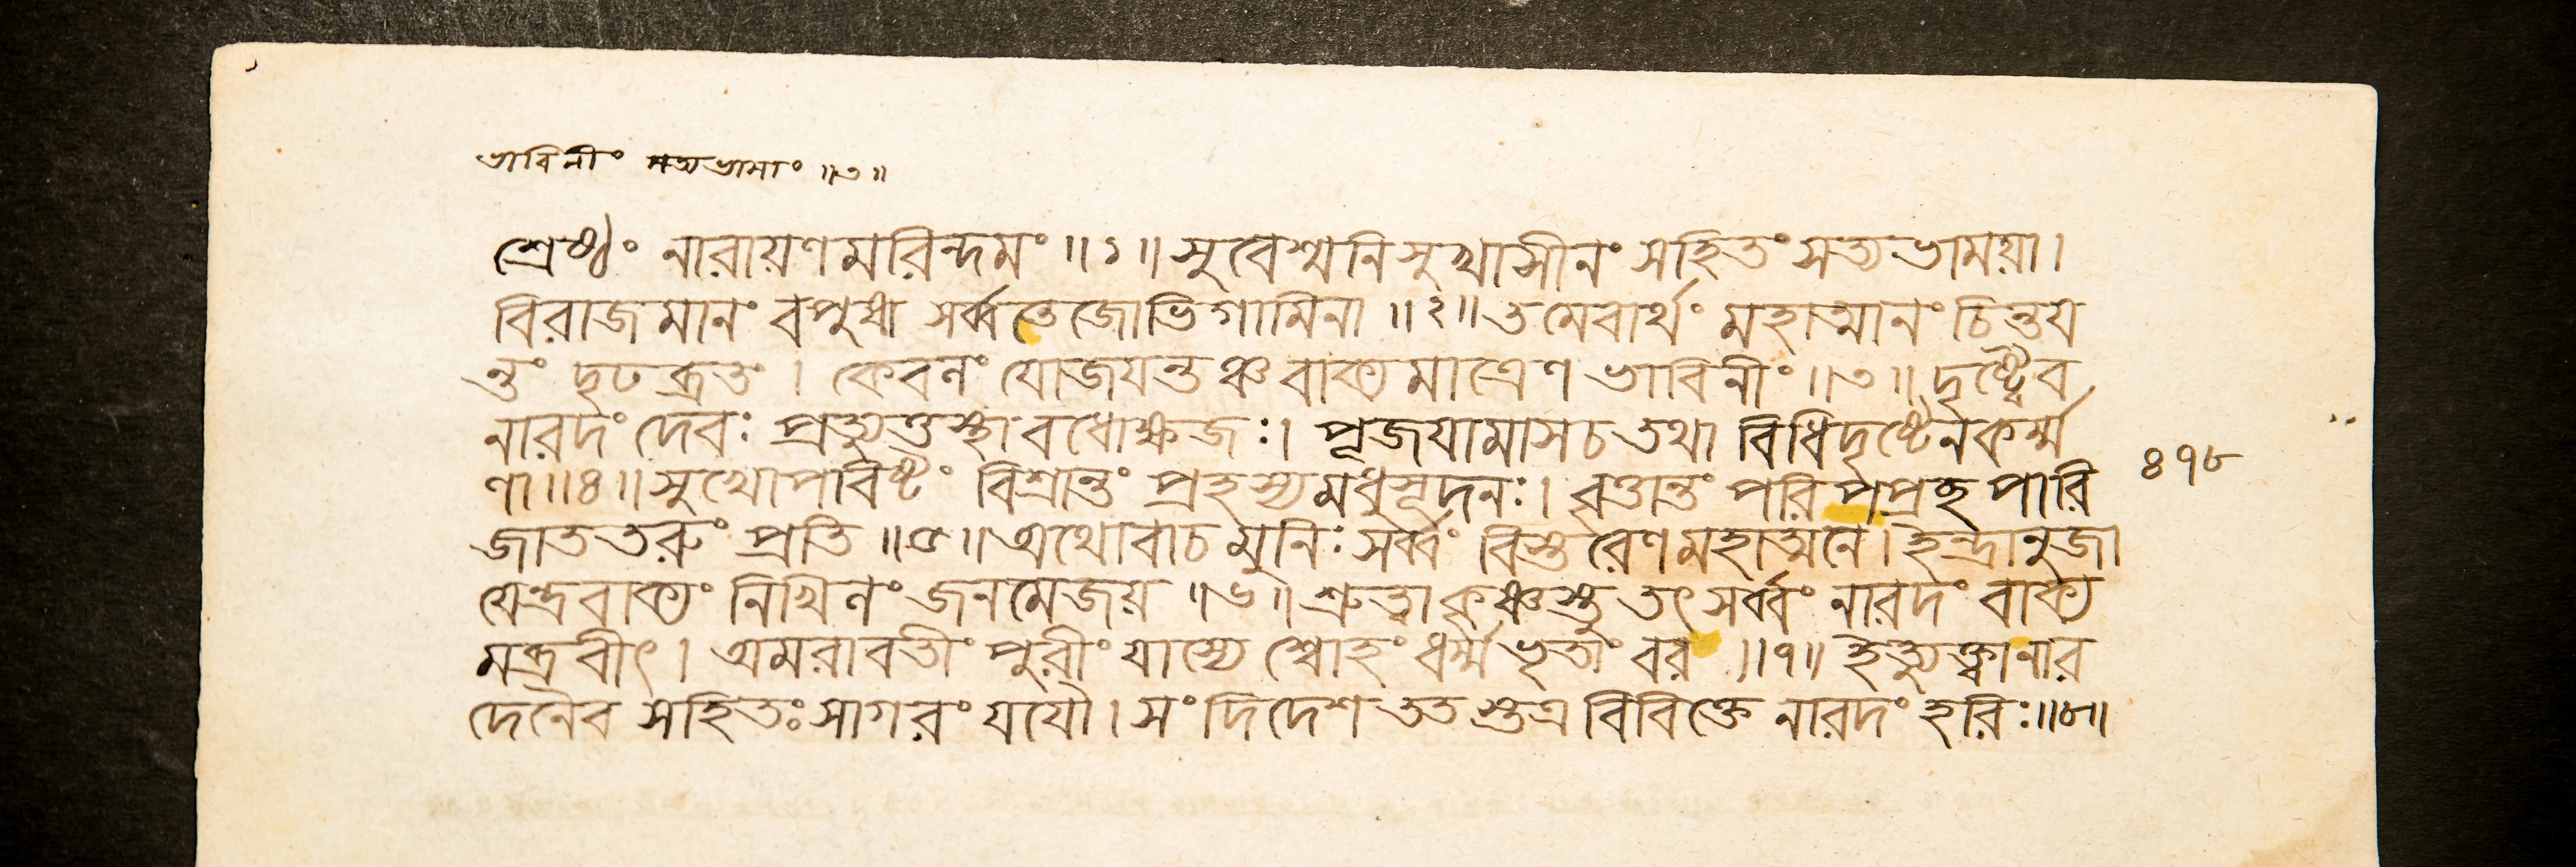 ভাবিনীং সত্যভামাং ॥৩॥
শ্রেষ্ঠং নারায়ণমরিন্দমং ॥১॥ সুবেশ্মনিসুখাসীনং সহিতং সত্যভাময়া।
বিরাজমানং বপুষা সর্ব্বতেজোভিগামিনা ॥২॥ তমেবার্থং মহাত্মানং চিন্তয
ন্তং দৃঢব্রতং । কেবলং যোজযন্তঞ্চ বাক্যমাত্রেণ ভাবিনীং ॥৩॥ দৃষ্ট্বৈব
নারদং দেবঃ প্রত্যুত্তস্থাবধোক্ষজঃ। পূজযামাসচ তথা বিধিদৃষ্টেনকর্ম্ম
ণা ॥৪॥ সুখোপবিষ্টং বিশ্রান্তং প্রহস্যমধুসূদনঃ। বৃত্তান্তং পরিপপ্রছ পারি
জাততরুং প্রতি ॥৫॥ অথোবাচ মুনিঃ সর্ব্বং বিস্তরেণমহাত্মনে। ইন্দ্রানুজা
যেন্দ্রবাক্যং নিখিলং জনমেজয় ॥৬॥ শ্রুত্বাকৃষ্ণস্তু তৎ সর্ব্বং নারদং বাক্য
মব্রবীৎ । অমরাবতীং পুরীং যাস্যে শ্বোহং ধর্ম্মভৃতাং বর ॥৭॥ ইত্যুক্ত্বানার
দেনৈব সহিতঃ সাগরং যযৌ। সংদিদেশ ততস্তত্র বিবিক্তে নারদং হরিঃ॥৮॥
৪৭৮